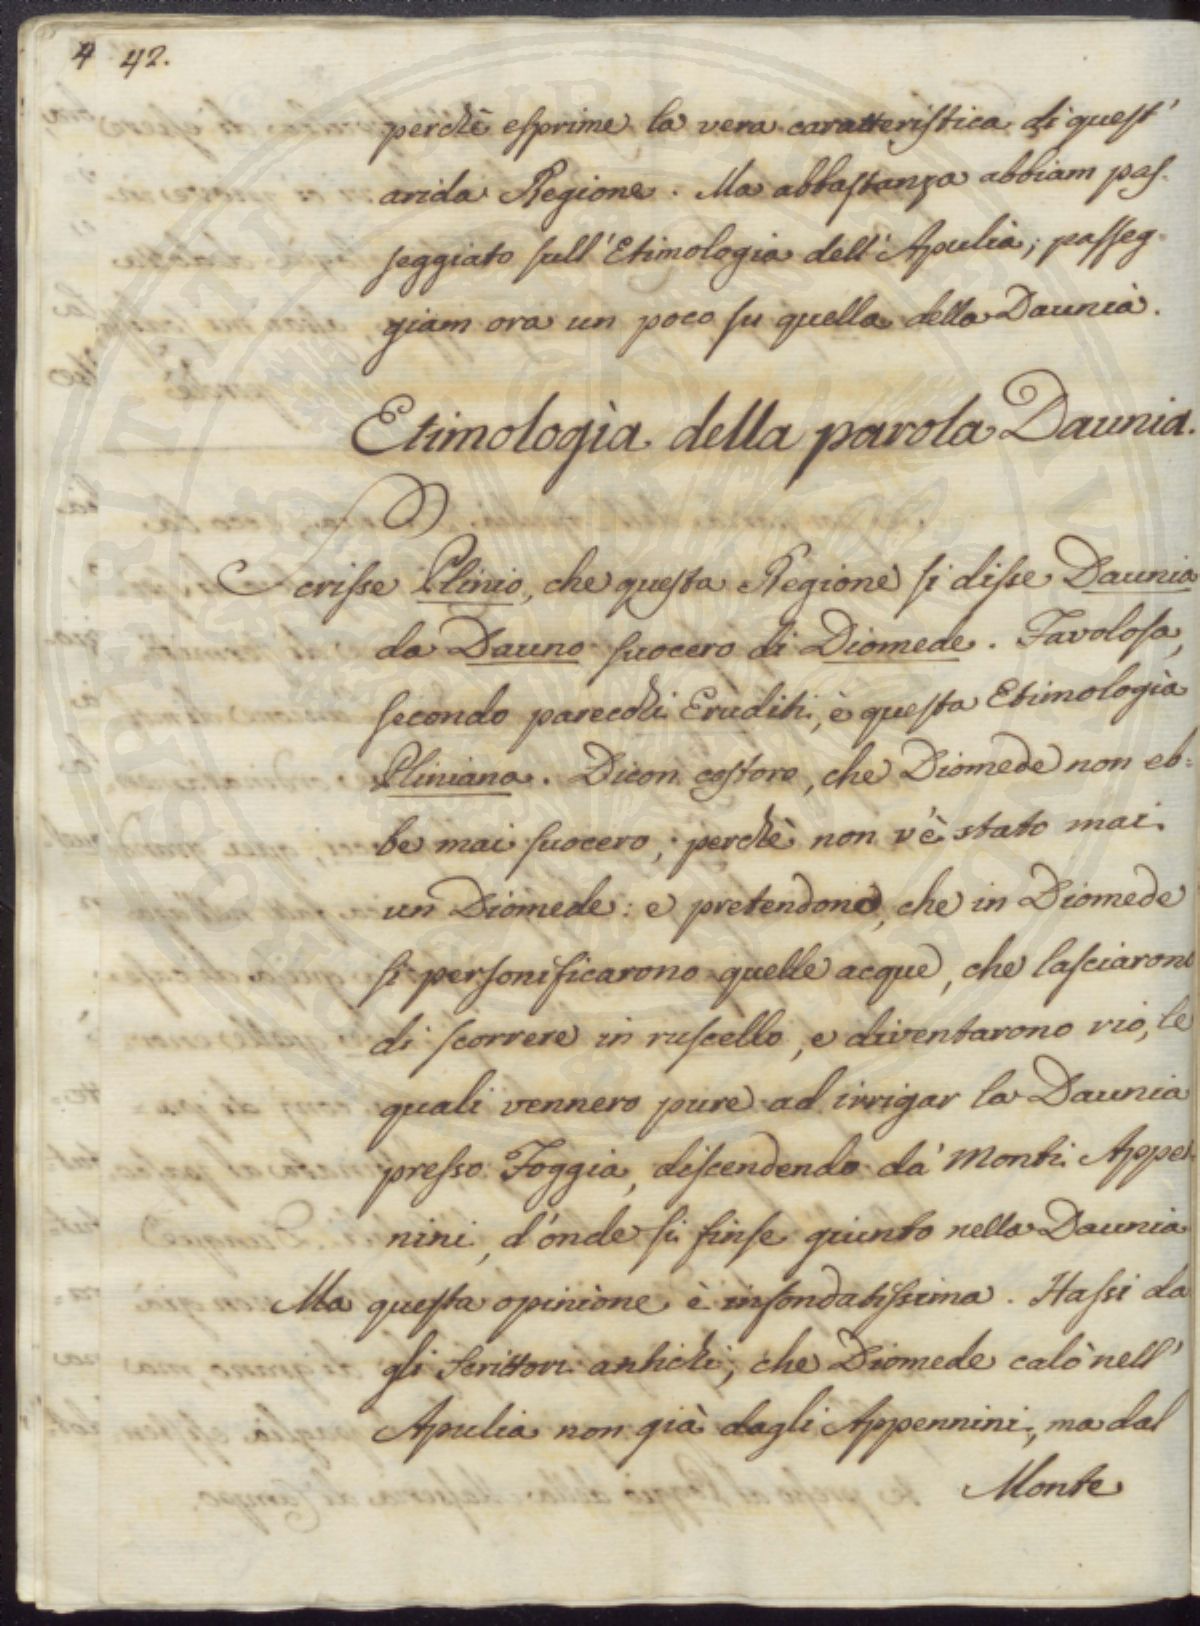 4 42.
perchè esprime la vera caratteristica di quest'
arida Regione. Ma abbastanza abbiam pas-
seggiato sull'Etimologia dell'Apulia; passeg-
giam ora un poco su quella della Daunia.
Etimologìa della parola Daunia.
Scrisse Plinio, che questa Regione si disse Daunia
da Dauno suocero di Diomede. Favolosa,
secondo parecchi Eruditi, è questa Etimologìa
Pliniana. Dicon costoro, che Diomede non eb-
be mai suocero, perchè non v'è stato mai
un Diomede: e pretendono, che in Diomede
si personificarono quelle acque, che lasciarono
di scorrere in ruscello, e diventarono rio, le
quali vennero pure ad irrigar la Daunia
presso Foggia, discendendo da' Monti Appen-
nini, d'onde si finse giunto nella Daunia
Ma questa opinione è infondatissima. Hassi da
gli Scrittori antichi, che Diomede calò nell'
Apulia non già dagli Appennini, ma dal
Monte
PROSPERITATI PUBLICAE